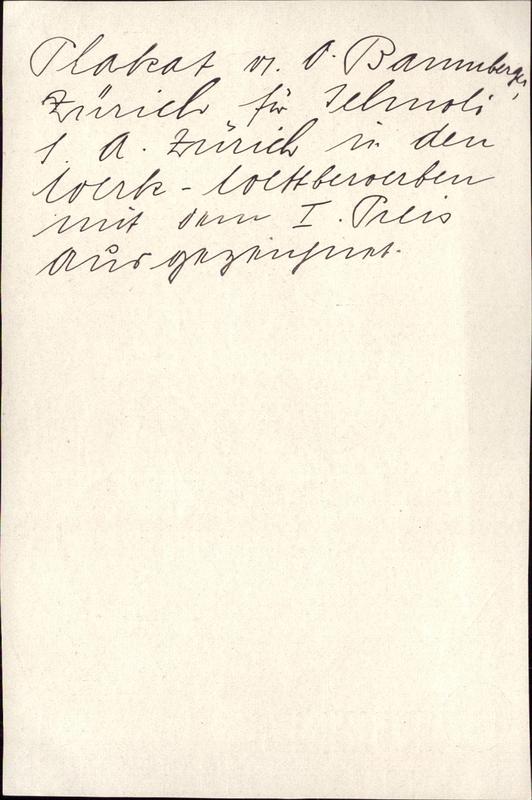 Plakat v. O. Baumberger,
Zürich für Jelmoli
S. A. Zürich in den
Werk-Wettbewerben
mit dem I. Preis
ausgezeichnet.